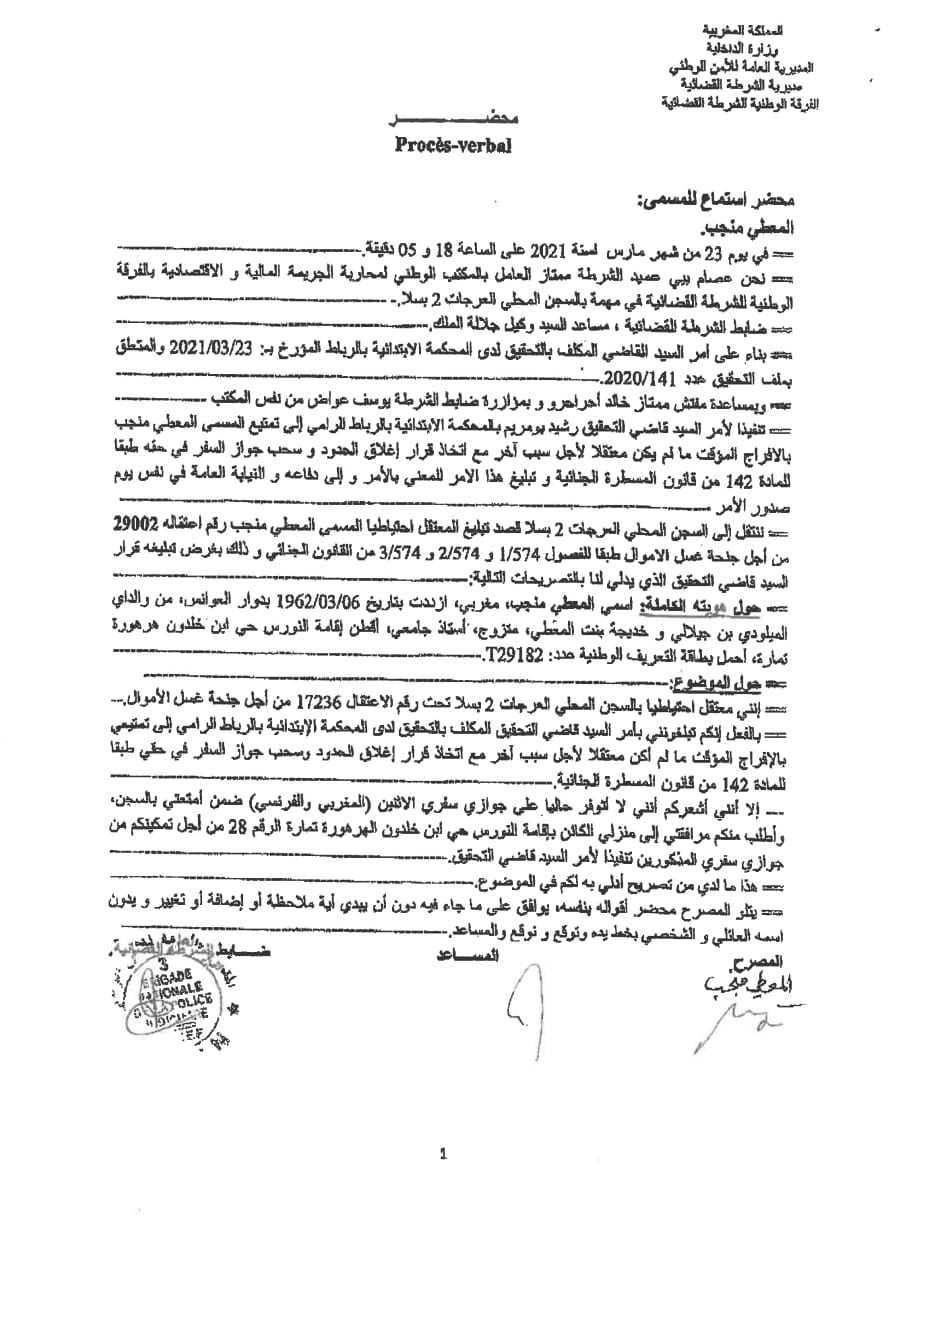 المملكة المغربية
وزارة الداخلية
المديرية العامة للأمن الوطني
مديرية الشرطة القضائية
الفرقة الوطنية للشرطة القضائية
محضـــــــــر
Procès-verbal
محضر استماع للمسمى:
المعطي منجب.
== في يوم 23 من شهر مارس لسنة 2021 على الساعة 18 و 05 دقيقة.
== نحن عصام بيي عميد الشرطة ممتاز العامل بالمكتب الوطني لمحاربة الجريمة المالية و الاقتصادية بالفرقة
الوطنية للشرطة القضائية في مهمة بالسجن المحلي العرجات 2 بسلا.
== ضابط الشرطة القضائية ، مساعد السيد وكيل جلالة الملك.
== بناء على أمر السيد القاضي المكلف بالتحقيق لدى المحكمة الابتدائية بالرباط المؤرخ بـ: 2021/03/23 والمتعلق
بملف التحقيق عدد 2020/141.
== وبمساعدة مفتش ممتاز خالد أجراحرو و بمؤازرة ضابط الشرطة يوسف عواض من نفس المكتب
== تنفيذا لأمر السيد قاضي التحقيق رشيد بومريم بالمحكمة الابتدائية بالرباط الرامي إلى تمتيع المسمى المعطي منجب
بالافراج المؤقت ما لم يكن معتقلا لأجل سبب آخر مع اتخاذ قرار إغلاق الحدود و سحب جواز السفر في حقه طبقا
للمادة 142 من قانون المسطرة الجنائية و تبليغ هذا الامر للمعني بالأمر و إلى دفاعه و النيابة العامة في نفس يوم
صدور الأمر
== ننتقل إلى السجن المحلي العرجات 2 بسلا قصد تبليغ المعتقل احتياطيا المسمى المعطي منجب رقم اعتقاله 29002
من أجل جنحة غسل الاموال طبقا للفصول 1/574 و 2/574 و 3/574 من القانون الجنائي و ذلك بغرض تبليغه قرار
السيد قاضي التحقيق الذي يدلي لنا بالتصريحات التالية:
== حول هويته الكاملة: اسمي المعطي منجب، مغربي، ازددت بتاريخ 1962/03/06 بدوار العوانس، من والداي
الميلودي بن جيلالي و خديجة بنت المعطي، متزوج، أستاذ جامعي، أقطن إقامة النورس حي ابن خلدون هرهورة
تمارة، أحمل بطاقة التعريف الوطنية عدد: T29182.
== حول الموضوع:
== إنني معتقل احتياطيا بالسجن المحلي العرجات 2 بسلا تحت رقم الاعتقال 17236 من أجل جنحة غسل الأموال.
== بالفعل إنكم تبلغونني بأمر السيد قاضي التحقيق المكلف بالتحقيق لدى المحكمة الإبتدائية بالرباط الرامي إلى تمتيعي
بالإفراج المؤقت ما لم أكن معتقلا لأجل سبب آخر مع اتخاذ قرار إغلاق الحدود وسحب جواز السفر في حقي طبقا
للمادة 142 من قانون المسطرة الجنائية.
== إلا أنني أشعركم أنني لا اتوفر حاليا على جوازي سفري الاثنين (المغربي والفرنسي) ضمن أمتعتي بالسجن،
وأطلب منكم مرافقتي إلى منزلي الكائن بإقامة النورس حي ابن خلدون الهرهورة تمارة الرقم 28 من أجل تمكينكم من
جوازي سفري المذكورين تنفيذا لأمر السيد قاضي التحقيق.
== هذا ما لدي من تصريح أدلي به لكم في الموضوع.
== يتلو المصرح محضر أقواله بنفسه، يوافق على ما جاء فيه دون أن يبدي أية ملاحظة أو إضافة أو تغيير و يدون
اسمه العائلي و الشخصي بخط يده وتوقع و نوقع والمساعد.
المصرح. المســـاعد ضـــابط الشرطة القضائية.
المعطي منجب
3
BRIGADE
NATIONALE
POLICE
1